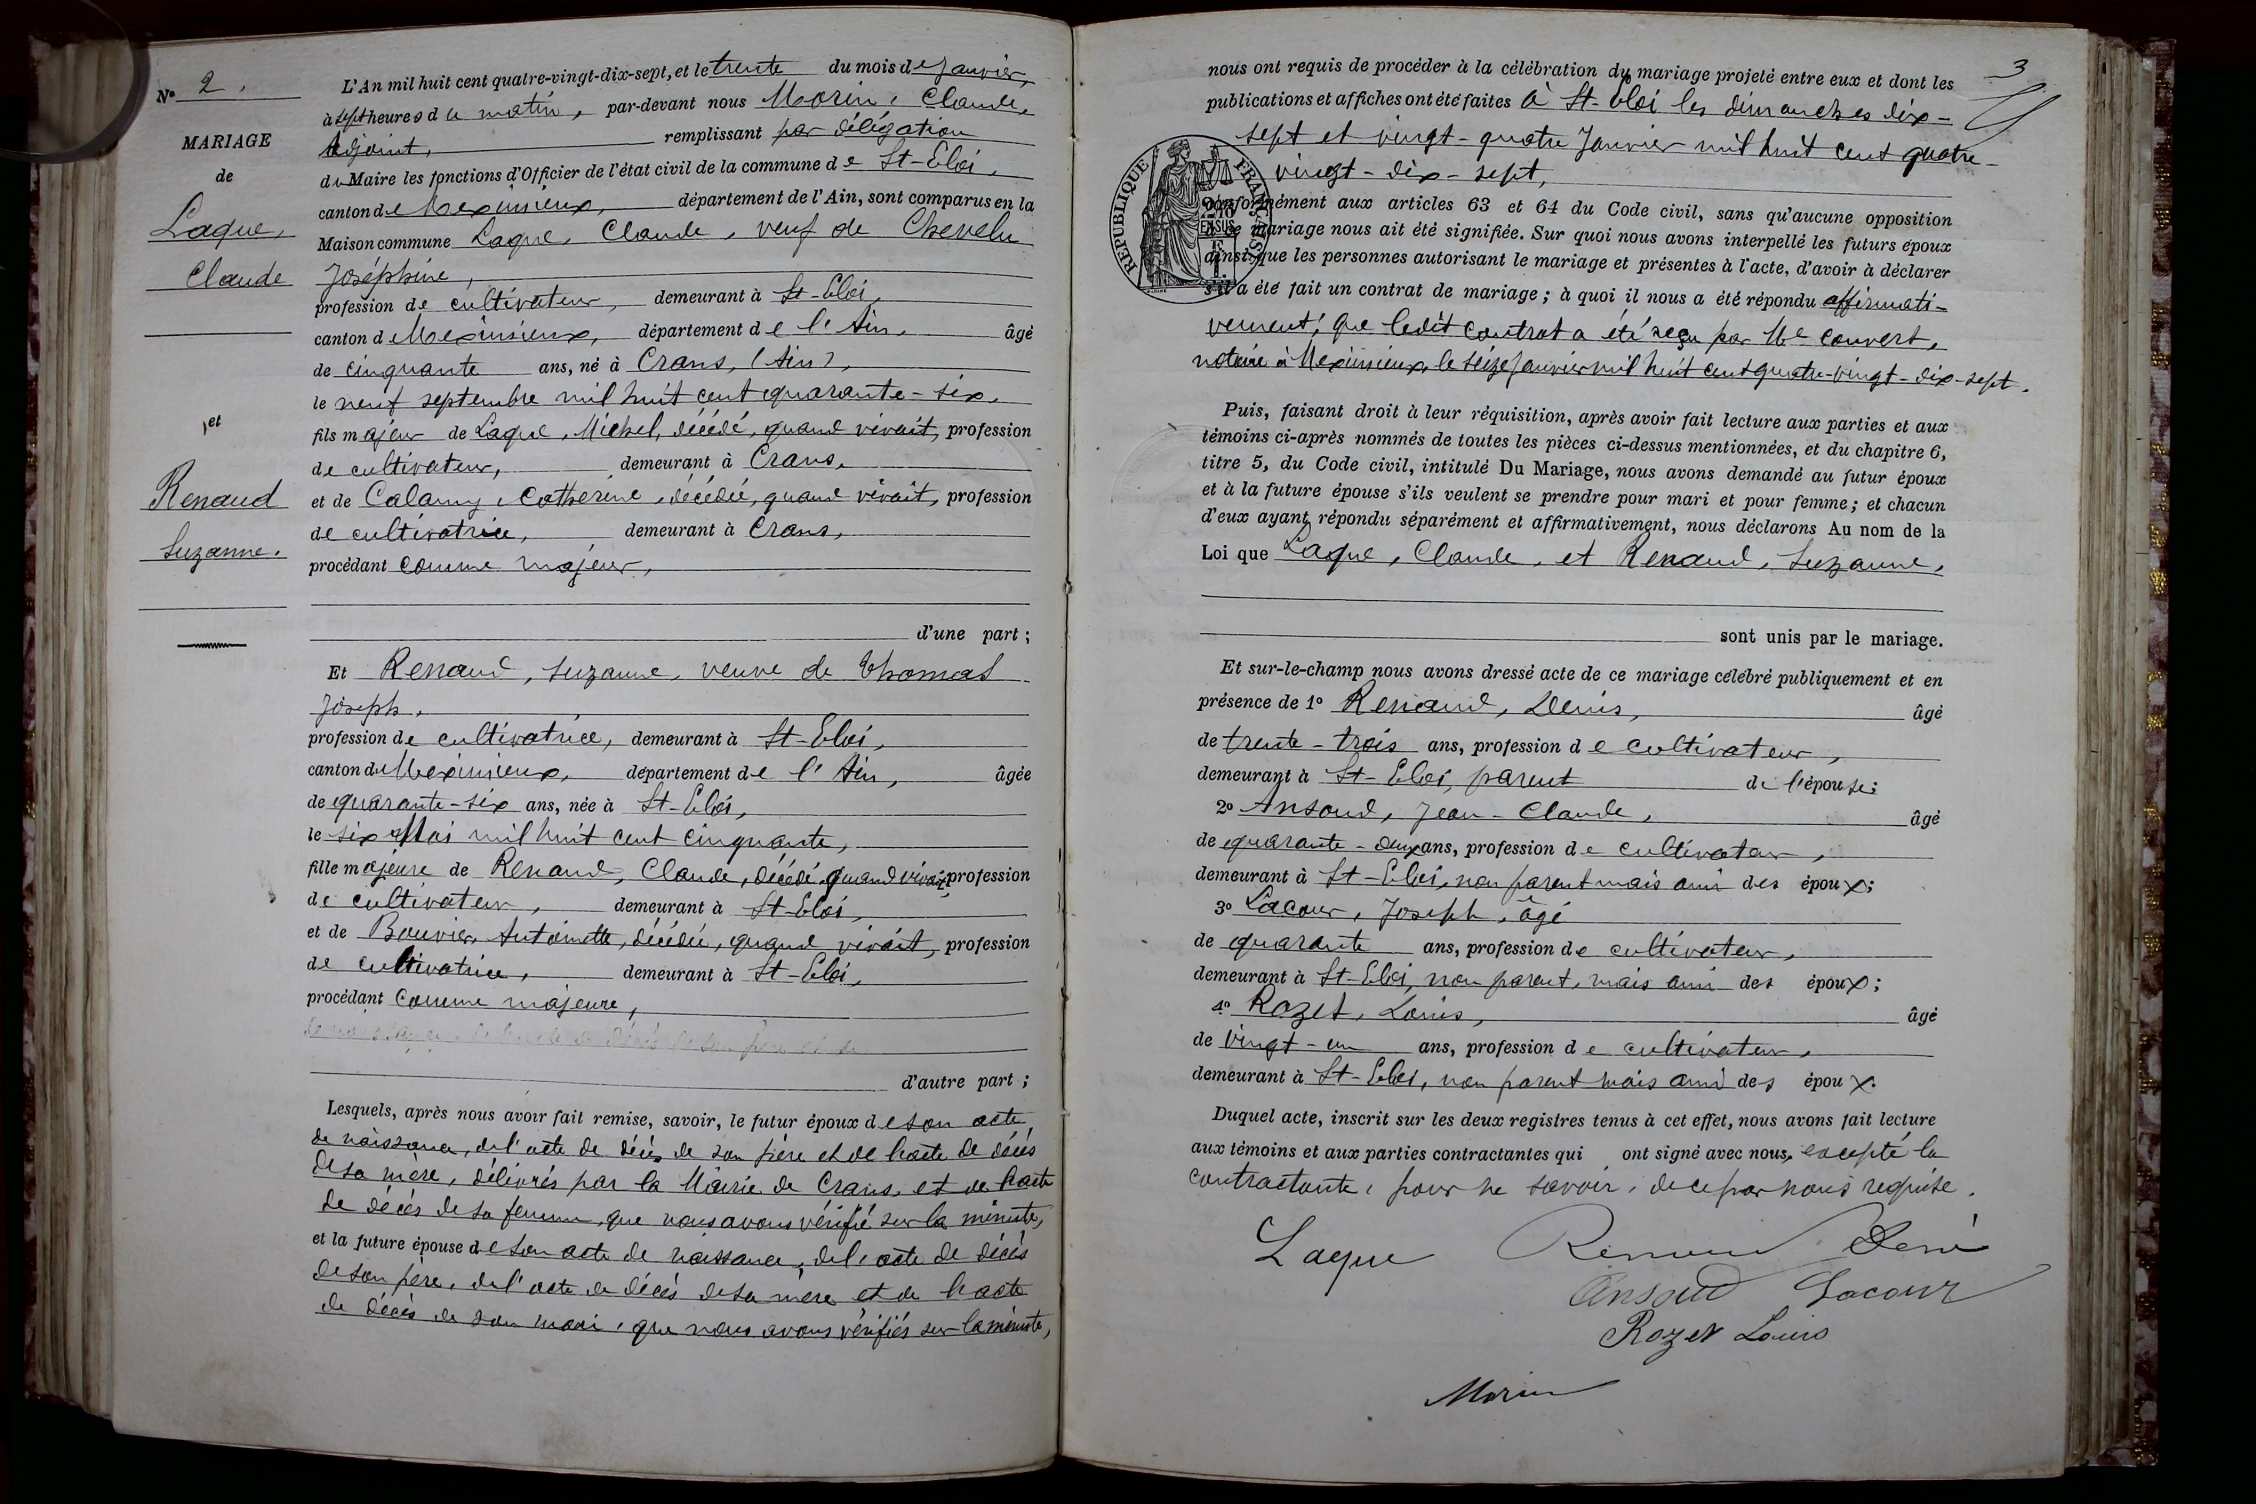 N° 2.
MARIAGE
de
Laque,
Claude
et
Renaud
Suzanne.
L'An mil huit cent quatre-vingt-dix-sept, et le trente du mois de Janvier,
à sept heures du matin, par-devant nous Morin, Claude,
Adjoint, remplissant par délégation
du Maire les fonctions d'Officier de l'état civil de la commune de St-Eloi,
canton de Meximieux, département de l'Ain, sont comparus en la
Maison commune Laque, Claude, veuf de Chevelu
Joséphine,
profession de cultivateur, demeurant à St-Eloi,
canton de Meximieux, département de l'Ain, âgé
de cinquante ans, né à Crans, (Ain),
le neuf septembre mil huit cent quarante-six,
fils majeur de Laque, Michel, décédé, quand vivait, profession
de cultivateur, demeurant à Crans,
et de Calamy, Catherine, décédée, quand vivait, profession
de cultivatrice, demeurant à Crans,
procédant comme majeur,
d'une part ;
Et Renaud, Suzanne, veuve de Thomas
Joseph,
profession de cultivatrice, demeurant à St-Eloi,
canton de Meximieux, département de l'Ain, âgée
de quarante-six ans, née à St-Eloi,
le six Mai mil huit cent cinquante,
fille majeure de Renaud, Claude, décédé, quand vivait, profession
de cultivateur, demeurant à St-Eloi,
et de Bouvier, Antoinette, décédée, quand vivait, profession
de cultivatrice, demeurant à St-Eloi,
procédant comme majeure,
d'autre part ;
Lesquels, après nous avoir fait remise, savoir, le futur époux de son acte
de naissance, de l'acte de décès de son père et de l'acte de décès
de sa mère, délivrés par la Mairie de Crans, et de l'acte
de décès de sa femme, que nous avons vérifié sur la minute,
et la future épouse de son acte de naissance, de l'acte de décès
de son père, de l'acte de décès de sa mère et de l'acte
de décès de son mari, que nous avons vérifiés sur la minute,
3
nous ont requis de procéder à la célébration du mariage projeté entre eux et dont les
publications et affiches ont été faites à St-Eloi les dimanches dix-
sept et vingt-quatre Janvier mil huit cent quatre-
vingt-dix-sept,
RÉPUBLIQUE FRANÇAISE
conformément aux articles 63 et 64 du Code civil, sans qu'aucune opposition
à ce mariage nous ait été signifiée. Sur quoi nous avons interpellé les futurs époux
ainsi que les personnes autorisant le mariage et présentes à l'acte, d'avoir à déclarer
s'il a été fait un contrat de mariage ; à quoi il nous a été répondu affirmati-
vement, que ledit contrat a été reçu par Me Convert,
notaire à Meximieux, le seize janvier mil huit cent quatre-vingt-dix-sept.
Puis, faisant droit à leur réquisition, après avoir fait lecture aux parties et aux
témoins ci-après nommés de toutes les pièces ci-dessus mentionnées, et du chapitre 6,
titre 5, du Code civil, intitulé Du Mariage, nous avons demandé au futur époux
et à la future épouse s'ils veulent se prendre pour mari et pour femme ; et chacun
d'eux ayant répondu séparément et affirmativement, nous déclarons Au nom de la
Loi que Laque, Claude, et Renaud, Suzanne,
sont unis par le mariage.
Et sur-le-champ nous avons dressé acte de ce mariage célébré publiquement et en
présence de 1° Renaud, Denis, âgé
de trente-trois ans, profession de cultivateur,
demeurant à St-Eloi, parent de l'épouse ;
2° Ansoud, Jean-Claude, âgé
de quarante-deux ans, profession de cultivateur,
demeurant à St-Eloi, non parent mais ami des époux ;
3° Lacour, Joseph, âgé
de quarante ans, profession de cultivateur,
demeurant à St-Eloi, non parent, mais ami des époux ;
4° Rozet, Louis, âgé
de vingt-un ans, profession de cultivateur,
demeurant à St-Eloi, non parent mais ami des époux.
Duquel acte, inscrit sur les deux registres tenus à cet effet, nous avons fait lecture
aux témoins et aux parties contractantes qui ont signé avec nous, excepté la
contractante, pour ne savoir, de ce par nous requise.
Laque Renaud Deni
Ansoud Lacour
Rozet Louis
Morin